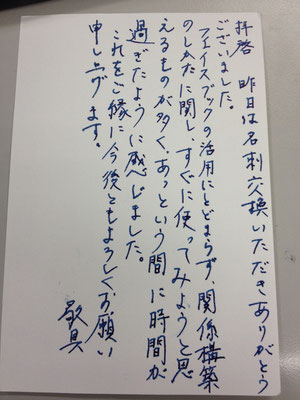 拝啓　昨日は名刺交換いただきありがとう
ございました。
フェイスブックの活用にとどまらず、関係構築
のしかたに関し、すぐに使ってみようと思
えるものが多く、あっという間に時間が
過ぎたように感じました。
これをご縁に今後ともよろしくお願い
申し上げます。
敬具